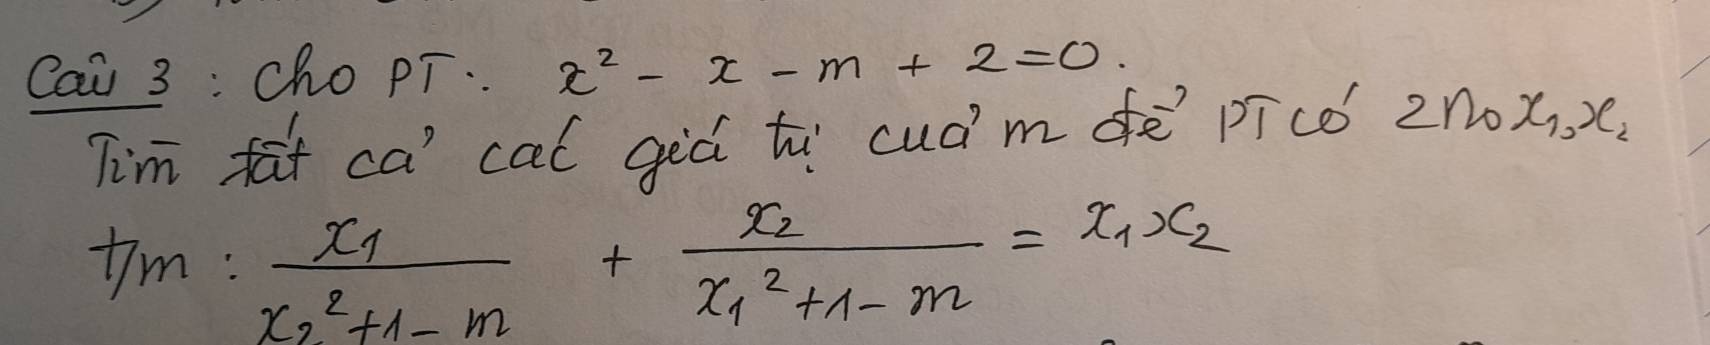 Câu 3 : Cho PT : x² - x - m + 2 = 0.
Tìm tất cả các giá trị của m để PT có 2 no x₁, x₂
t/m : x₁ / (x₂² + 1 - m) + x₂ / (x₁² + 1 - m) = x₁x₂